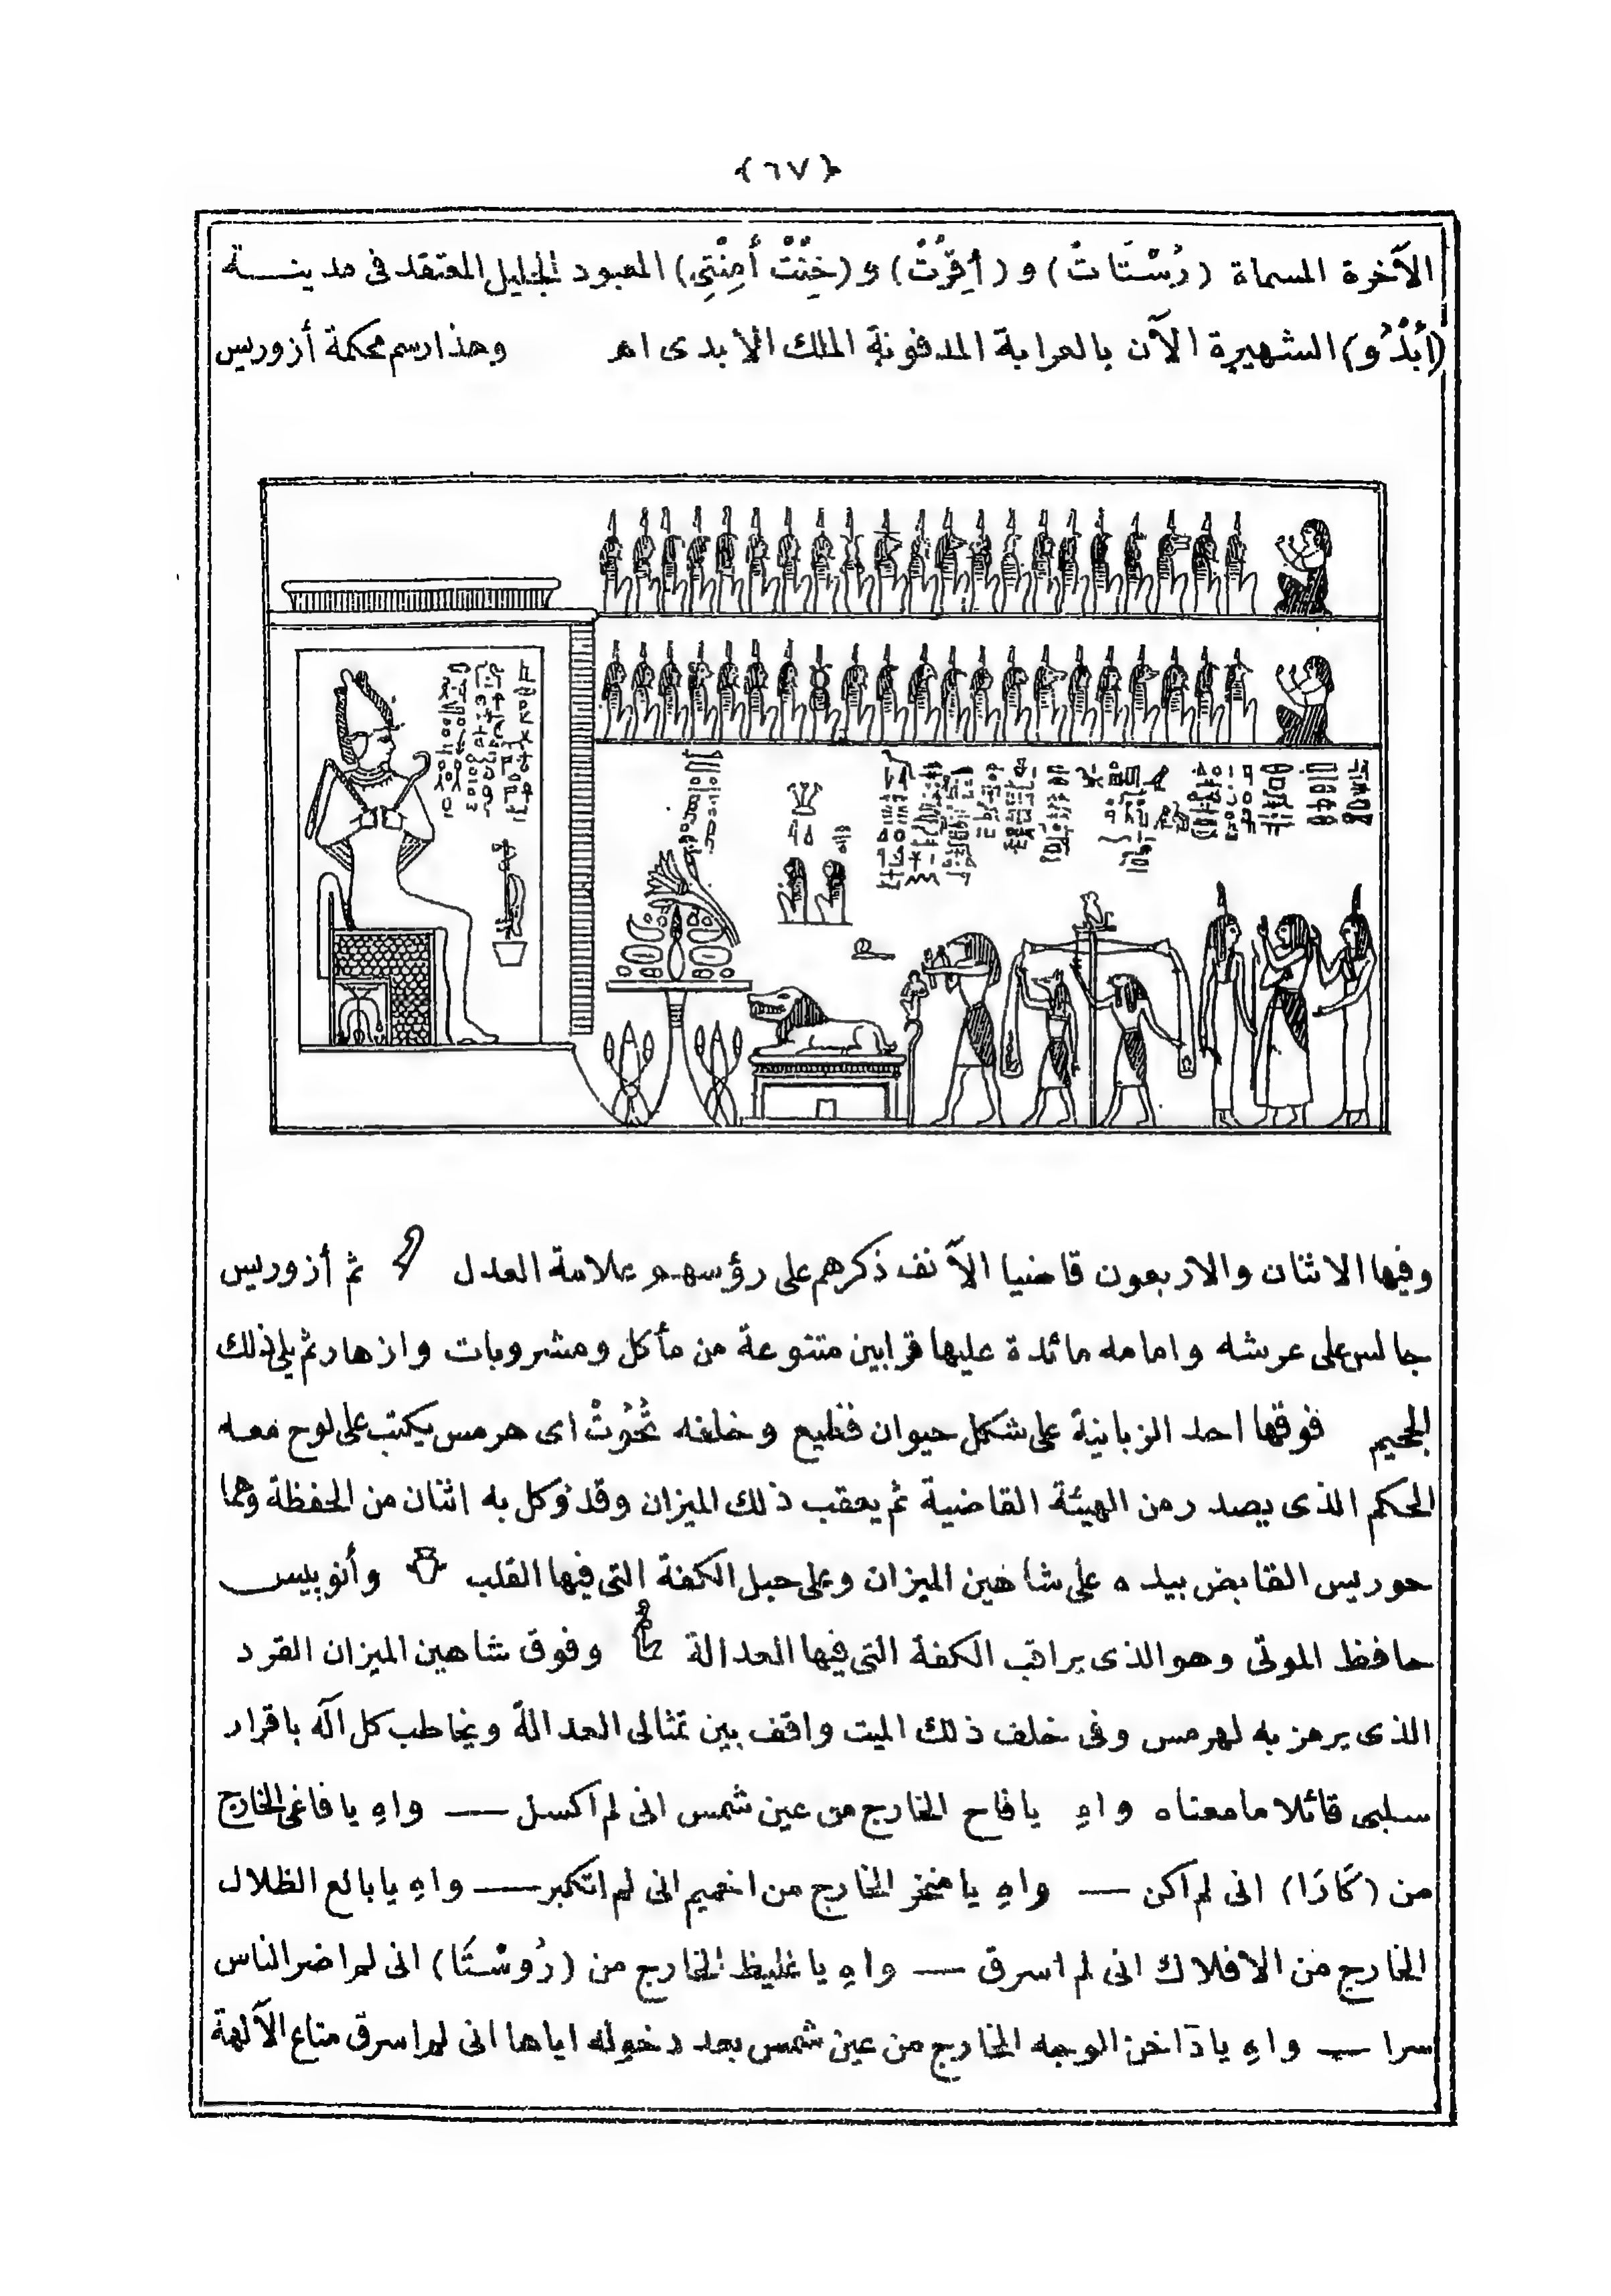 {٦٧}
الآخرة المسماة (رُسْتَاتْ) و (أَقِرْتْ) و (خِنْتْ أَمِنْتِى) المعبود الجليل المعتقد فى مدينـــة
(أبْدُو) الشهيرة الآن بالعرابة المدفونة الملك الأبدى اهـ وهذا رسم محكمة أزوريس
وفيها الاثنان والاربعون قاضيا الآنف ذكرهم على رؤسهم علامة العدل ثم أزوريس
جالس على عرشه وامامه مائدة عليها قرابين متنوعة من مأكل ومشروبات وازهار ثم يلى ذلك
الجحيم فوقها احد الزبانية على شكل حيوان فظيع وخلفه تُحُوتْ اى هرمس يكتب على لوح معه
الحكم الذى يصدر من الهيئة القاضية ثم يعقب ذلك الميزان وقد وُكل به اثنان من الحفظة وهما
حوريس القابض بيده على شاهين الميزان وعلى حبل الكفة التى فيها القلب وأنوبيس
حافظ الموتى وهو الذى يراقب الكفة التى فيها العدالة وفوق شاهين الميزان القرد
الذى يرمز به لهرمس وفى خلف ذلك الميت واقف بين تمثالى العدالة ويخاطب كل اله باقرار
سلبى قائلا ما معناه واهِ يا فاح الخارج من عين شمس انى لم اكسل — واهِ يا فاغى الخارج
من (كَارَا) انى لم اكن — واهِ يا منخر الخارج من اخميم انى لم اتكبر — واهِ يا بالع الظلال
الخارج من الافلاك انى لم اسرق — واهِ يا غليظ الخارج من (رُوسْتَا) انى لم اضر الناس
سرا — واهِ يا الوجه الخارج من عين شمس بعد دخوله اياها انى لم اسرق متاع الآلهة